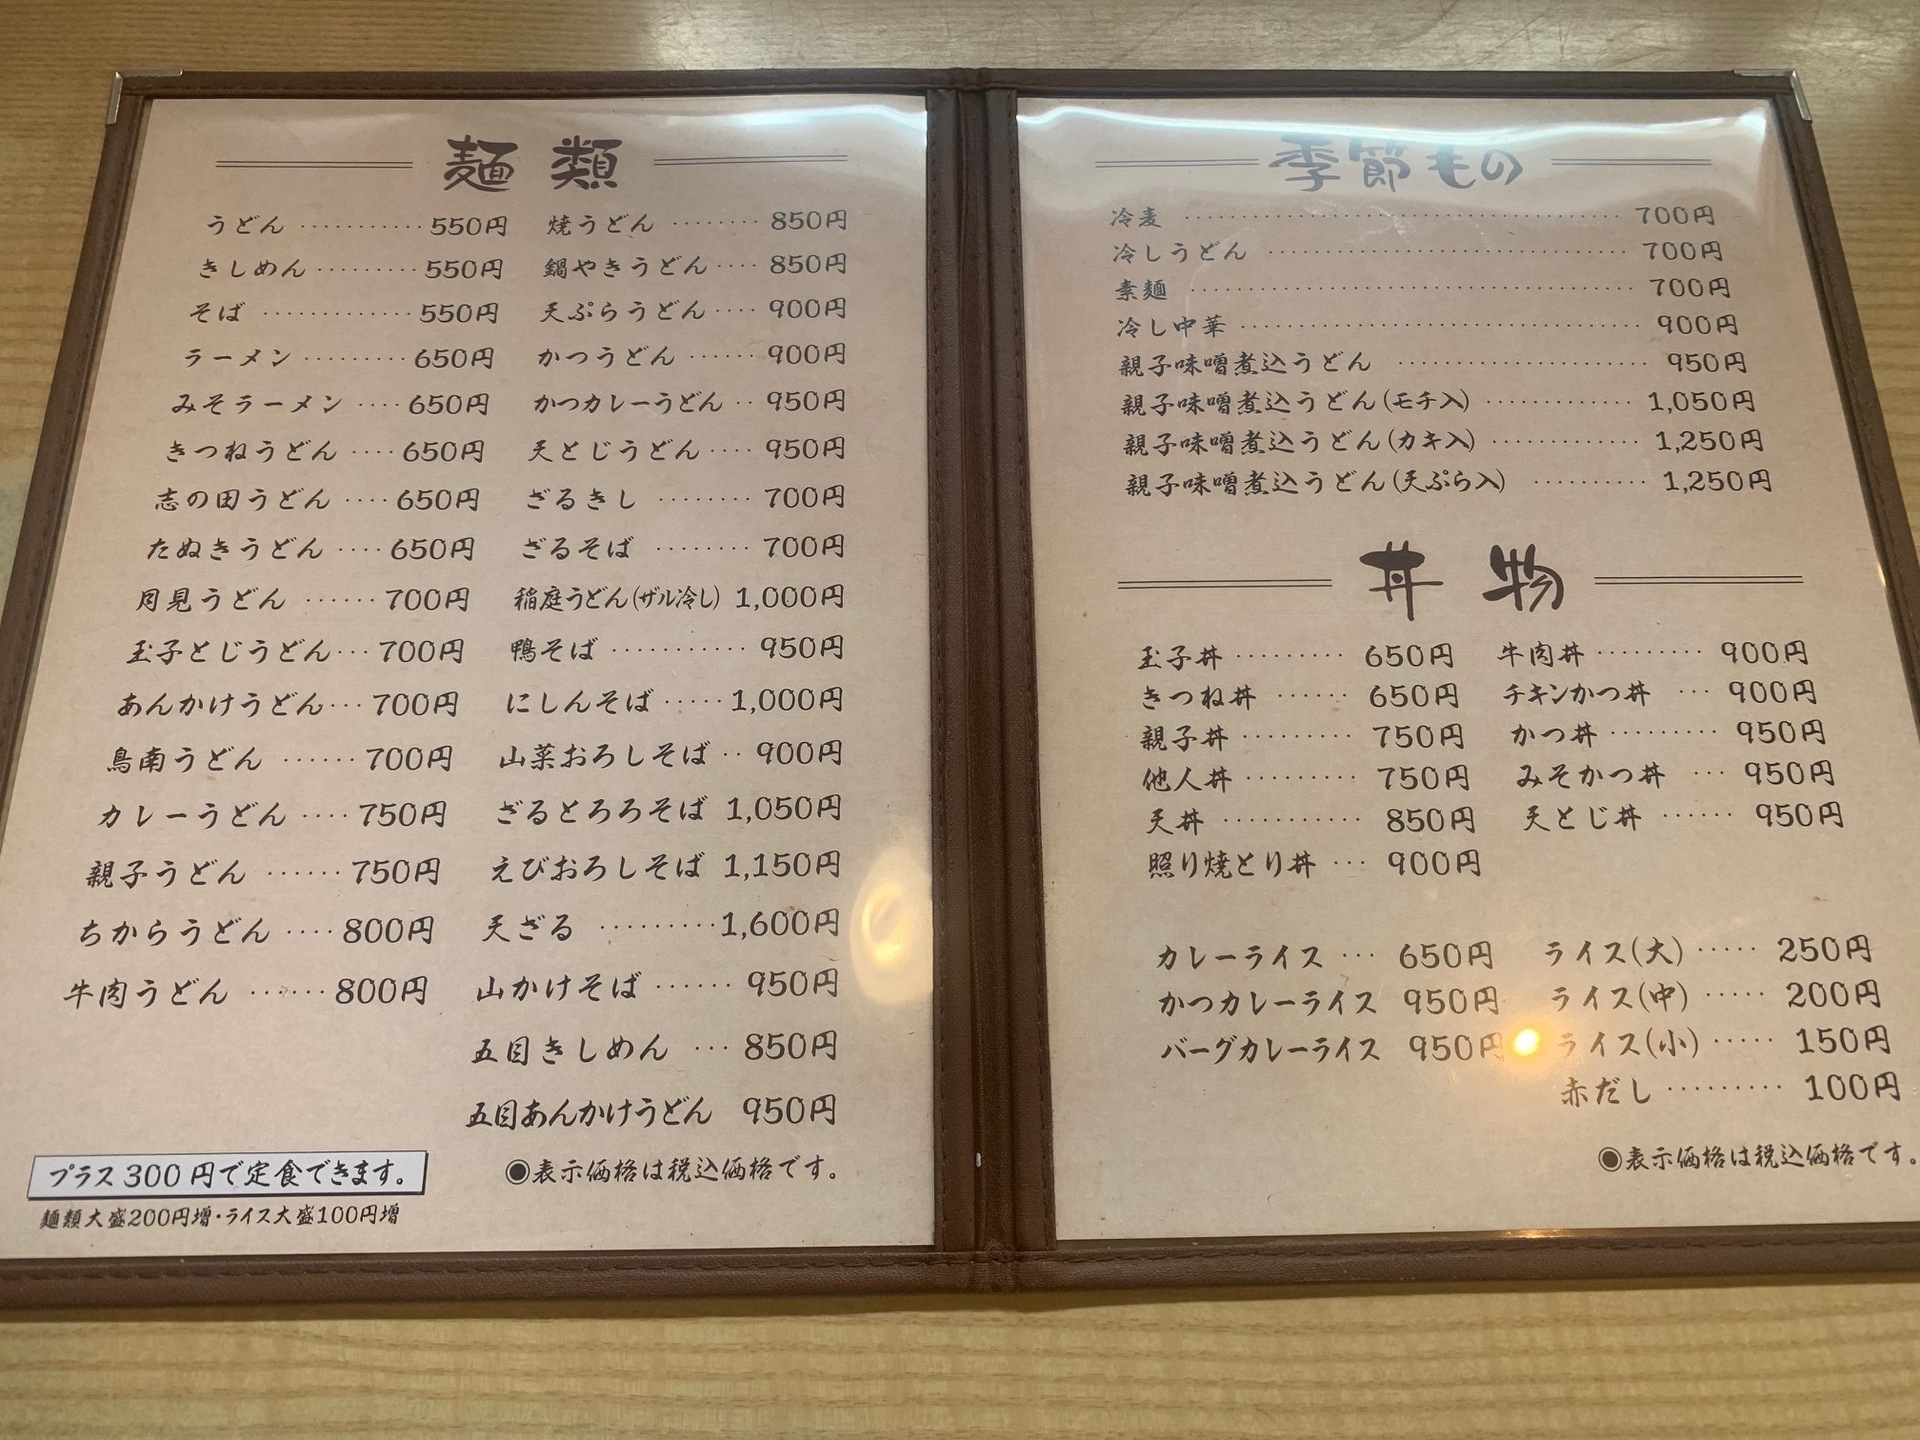 麺類
うどん ………… 550円
きしめん ……… 550円
そば ………… 550円
ラーメン ……… 650円
みそラーメン …. 650円
きつねうどん …. 650円
志の田うどん …. 650円
たぬきうどん …. 650円
月見うどん …… 700円
玉子とじうどん… 700円
あんかけうどん… 700円
鳥南うどん …… 700円
カレーうどん …. 750円
親子うどん …… 750円
ちからうどん …. 800円
牛肉うどん …… 800円
焼うどん ……… 850円
鍋やきうどん …. 850円
天ぷらうどん …. 900円
かつうどん …… 900円
かつカレーうどん ‥ 950円
天とじうどん …. 950円
ざるきし ……… 700円
ざるそば ……… 700円
稲庭うどん(ザル冷し) 1,000円
鴨そば ………… 950円
にしんそば ….. 1,000円
山菜おろしそば ‥ 900円
ざるとろろそば 1,050円
えびおろしそば 1,150円
天ざる ……… 1,600円
山かけそば …… 950円
五目きしめん … 850円
五目あんかけうどん 950円
プラス300円で定食できます。
麺類大盛200円増・ライス大盛100円増
◉表示価格は税込価格です。
季節もの
冷麦 ………… 700円
冷しうどん ………… 700円
素麺 ………… 700円
冷し中華 ………… 900円
親子味噌煮込うどん ………… 950円
親子味噌煮込うどん(モチ入) ………… 1,050円
親子味噌煮込うどん(カキ入) ………… 1,250円
親子味噌煮込うどん(天ぷら入) ………… 1,250円
丼物
玉子丼 ……… 650円
きつね丼 …… 650円
親子丼 ……… 750円
他人丼 ……… 750円
天丼 ………… 850円
照り焼とり丼 … 900円
牛肉丼 ……… 900円
チキンかつ丼 … 900円
かつ丼 ……… 950円
みそかつ丼 … 950円
天とじ丼 …… 950円
カレーライス … 650円
かつカレーライス 950円
バーグカレーライス 950円
ライス(大) ….. 250円
ライス(中) ….. 200円
ライス(小) ….. 150円
赤だし ……… 100円
◉表示価格は税込価格です。